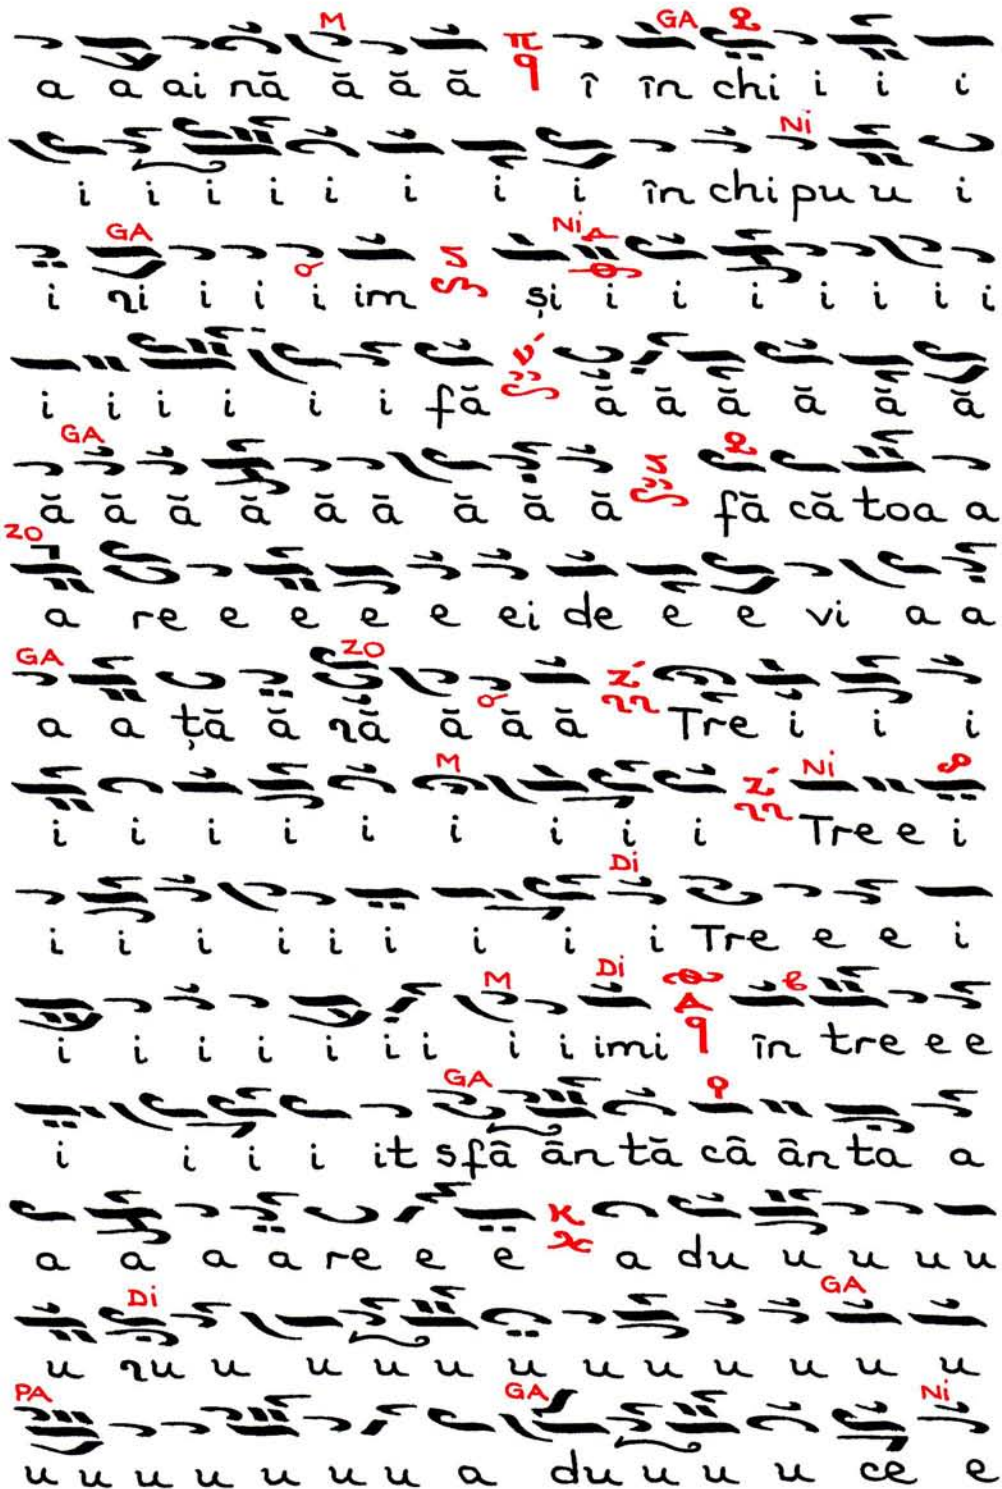 M π q GA
a a ai nă ă ă ă î în chi i i i
Ni
i i i i i i i i în chi pu u i
GA Ni
i ri i i i im și i i i i i i i
i i i i i i fă ă ă ă ă ă ă
GA
ă ă ă ă ă ă ă ă ă fă că toa a
ZO
a re e e e e ei de e e vi a a
GA ZO Z
a a ță ă ră ă ă ă Tre i i i
M Z Ni
i i i i i i i i i Tre e i
Di
i i i i i i i i i Tre e e i
M Di
i i i i i i i i i imi în tre e e
GA
i i i i it sfâ ân tă câ ân ta a
K
a a a a re e e a du u u u u
Di GA
u ru u u u u u u u u u u u
PA GA Ni
u u u u u u u a du u u u ce e